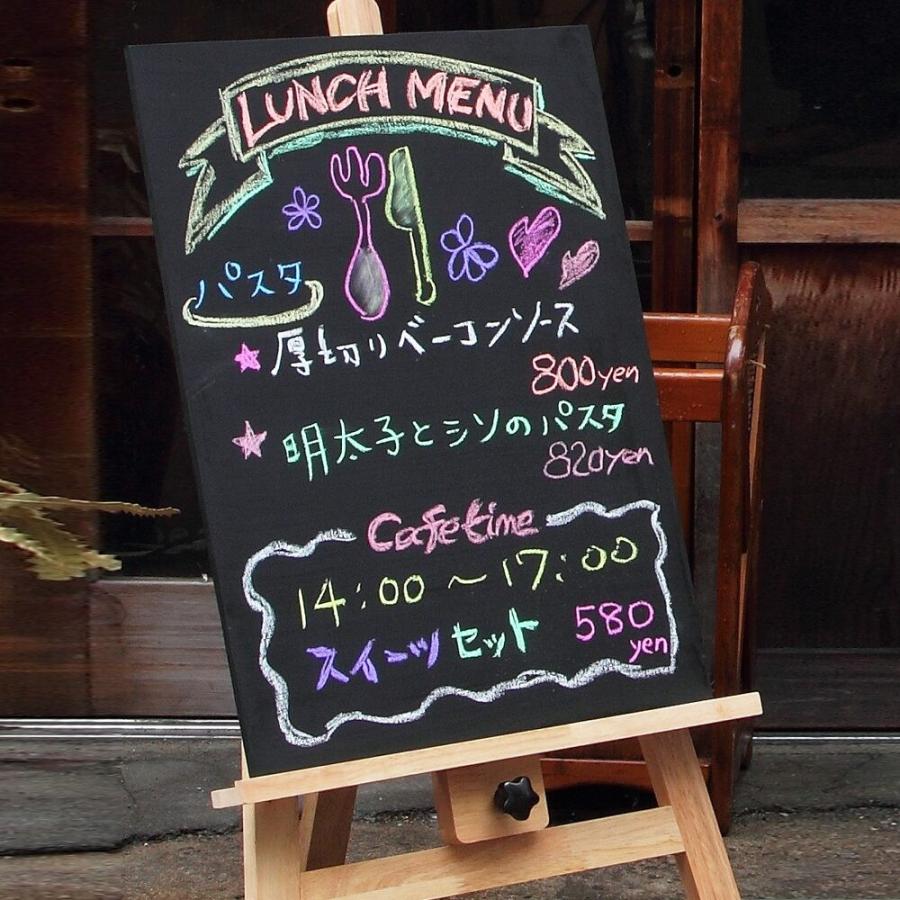 LUNCH MENU
パスタ
★厚切りベーコンソース
800yen
★明太子とシソのパスタ
820yen
Cafetime
14:00～17:00
スイーツセット 580
yen